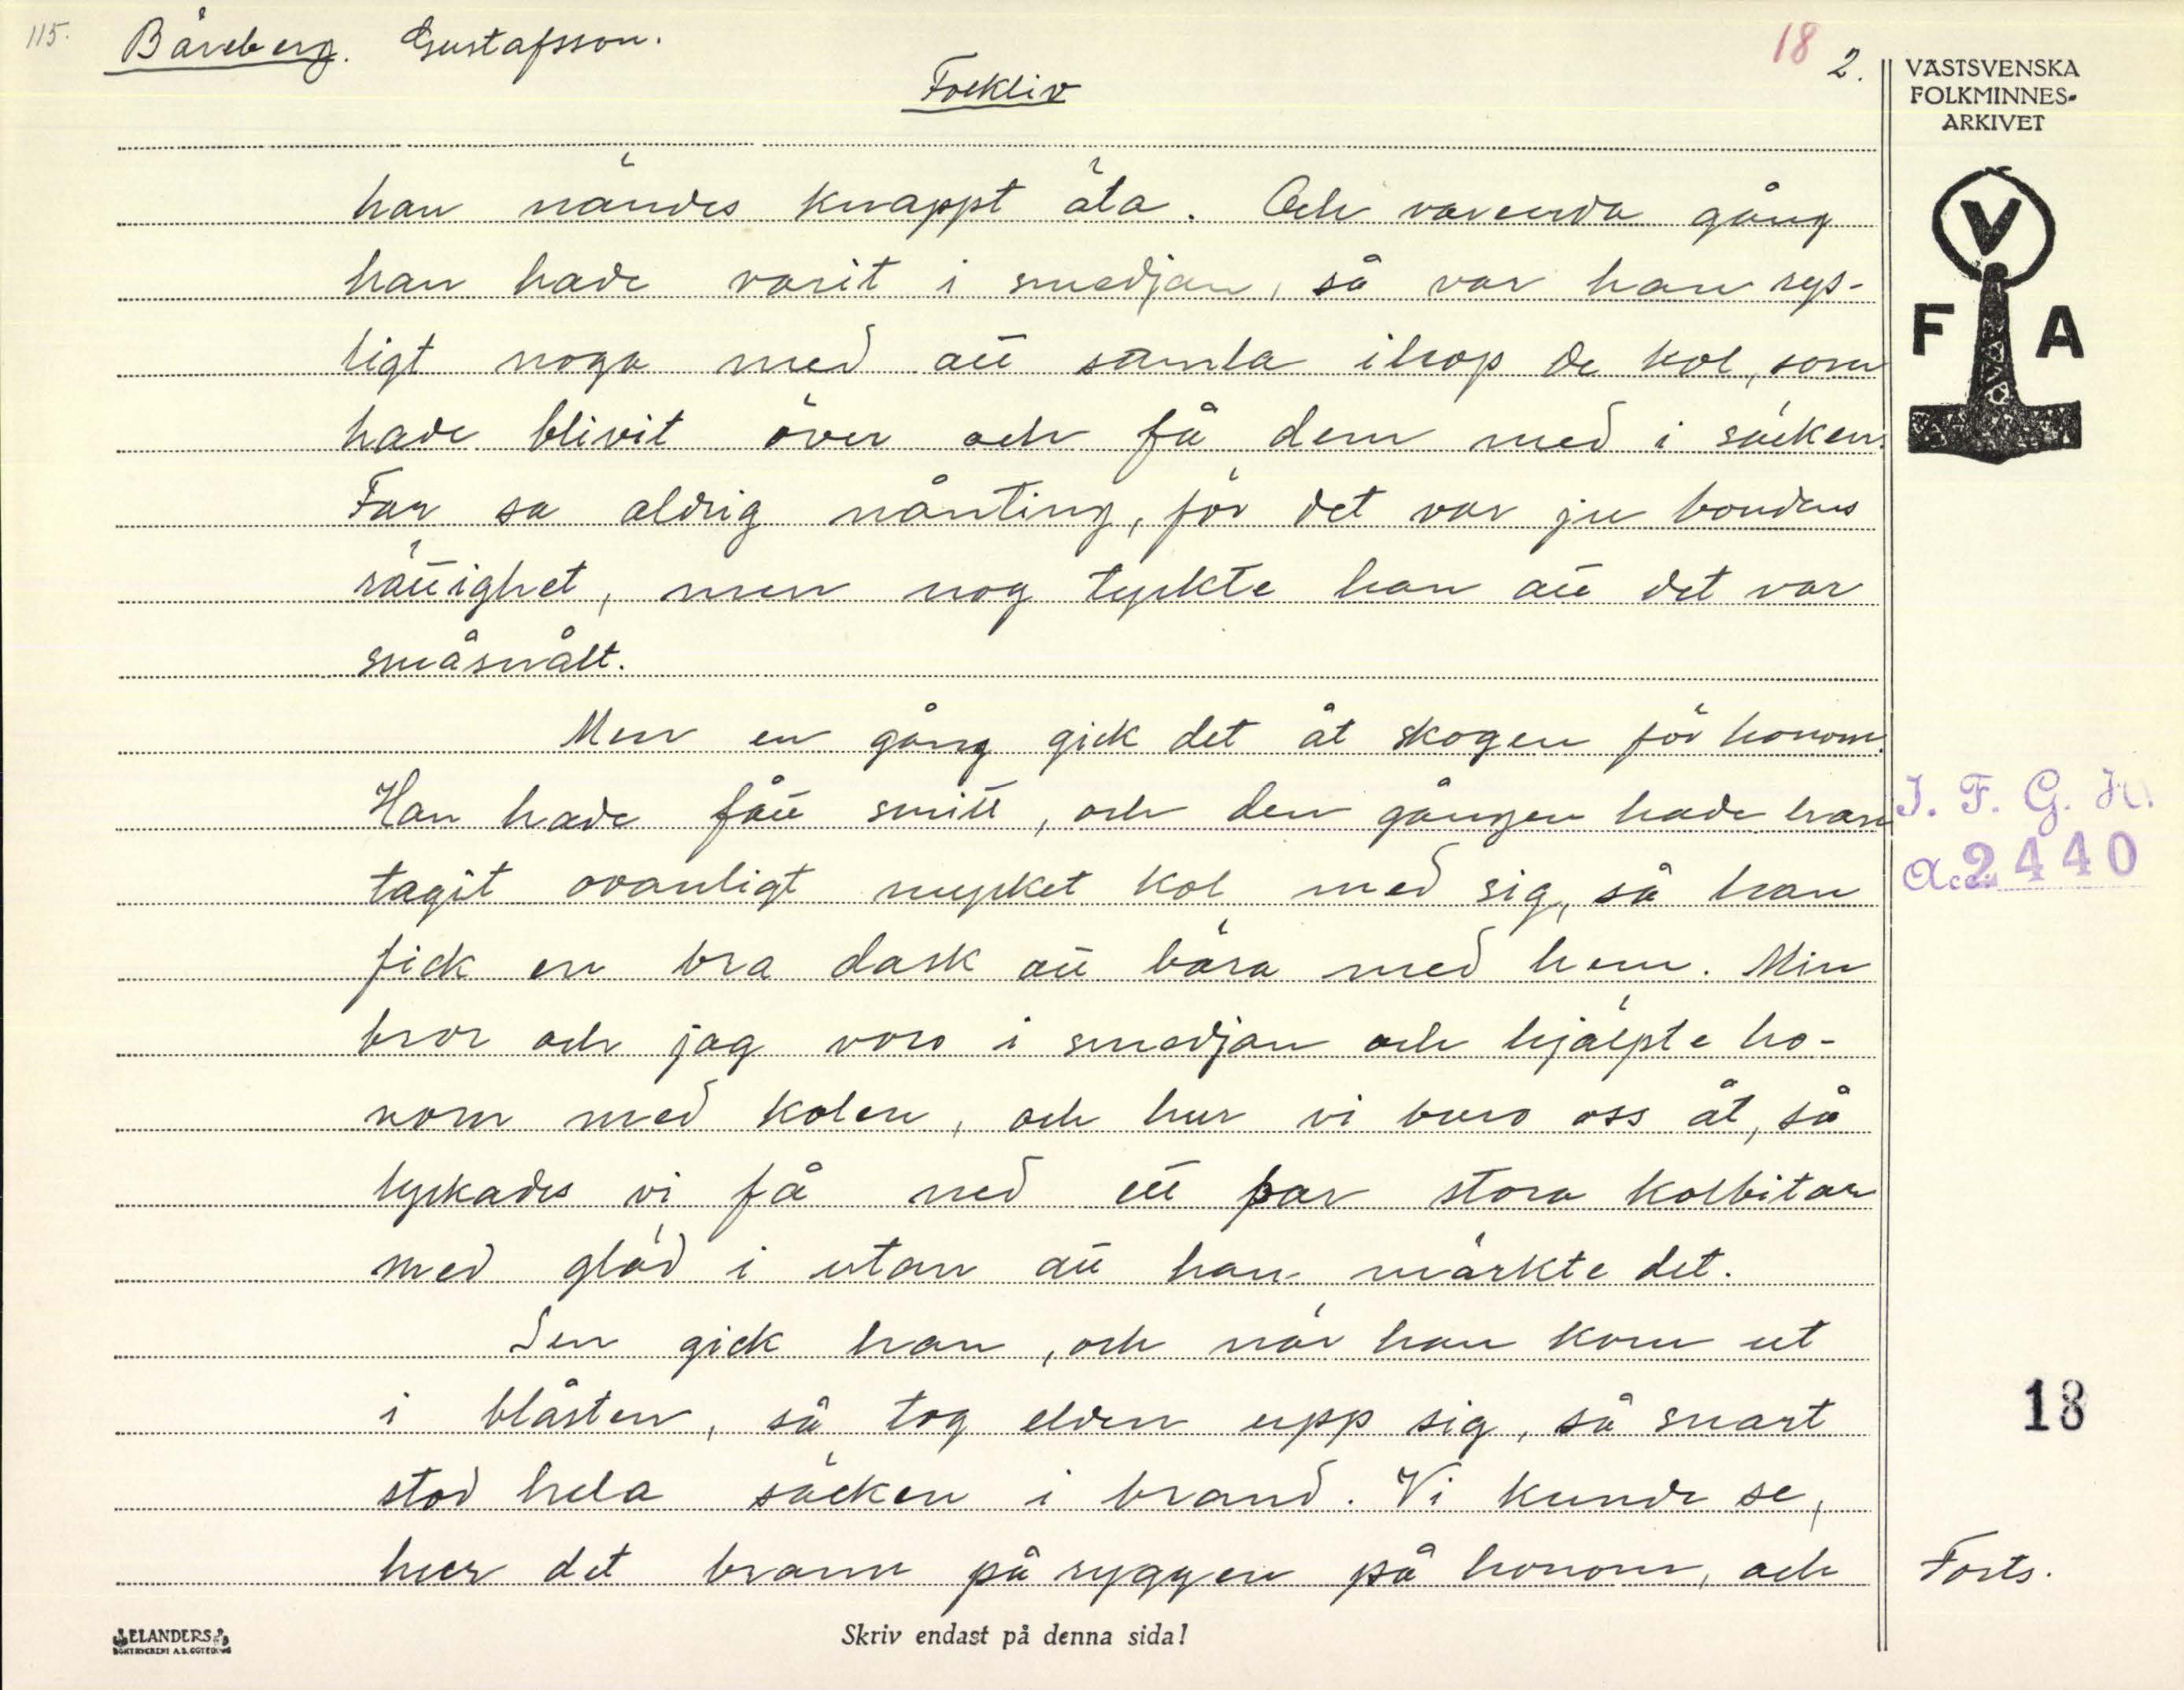 115.
Båreberg. Gustafsson.
18 2.
Folkliv
VÄSTSVENSKA
FOLKMINNES-
ARKIVET
V
F A
han nändes knappt äta. Och varenda gång
han hade varit i smedjan, så var han rys-
ligt noga med att samla ihop de kol, som
hade blivit över och få dem med i säcken.
Far sa aldrig nånting, för det var ju bondens
rättighet, men nog tyckte han att det var
småsnålt.
Men en gång gick det åt skogen för honom.
Han hade fått smitt, och den gången hade han
tagit ovanligt mycket kol med sig, så han
fick en bra dask att bära med hem. Min
bror och jag voro i smedjan och hjälpte ho-
nom med kolen, och hur vi buro oss åt, så
lyckades vi få ned ett par stora kolbitar
med glöd i utan att han märkte det.
Sen gick han, och när han kom ut
i blåsten, så tog elden upp sig, så snart
stod hela säcken i brand. Vi kunde se,
hur det brann på ryggen på honom, och
I. F. G. H.
Acc. 2440
18
Forts.
ELANDERS
BOKTRYCKERI A.B. GÖTEBORG
Skriv endast på denna sida!